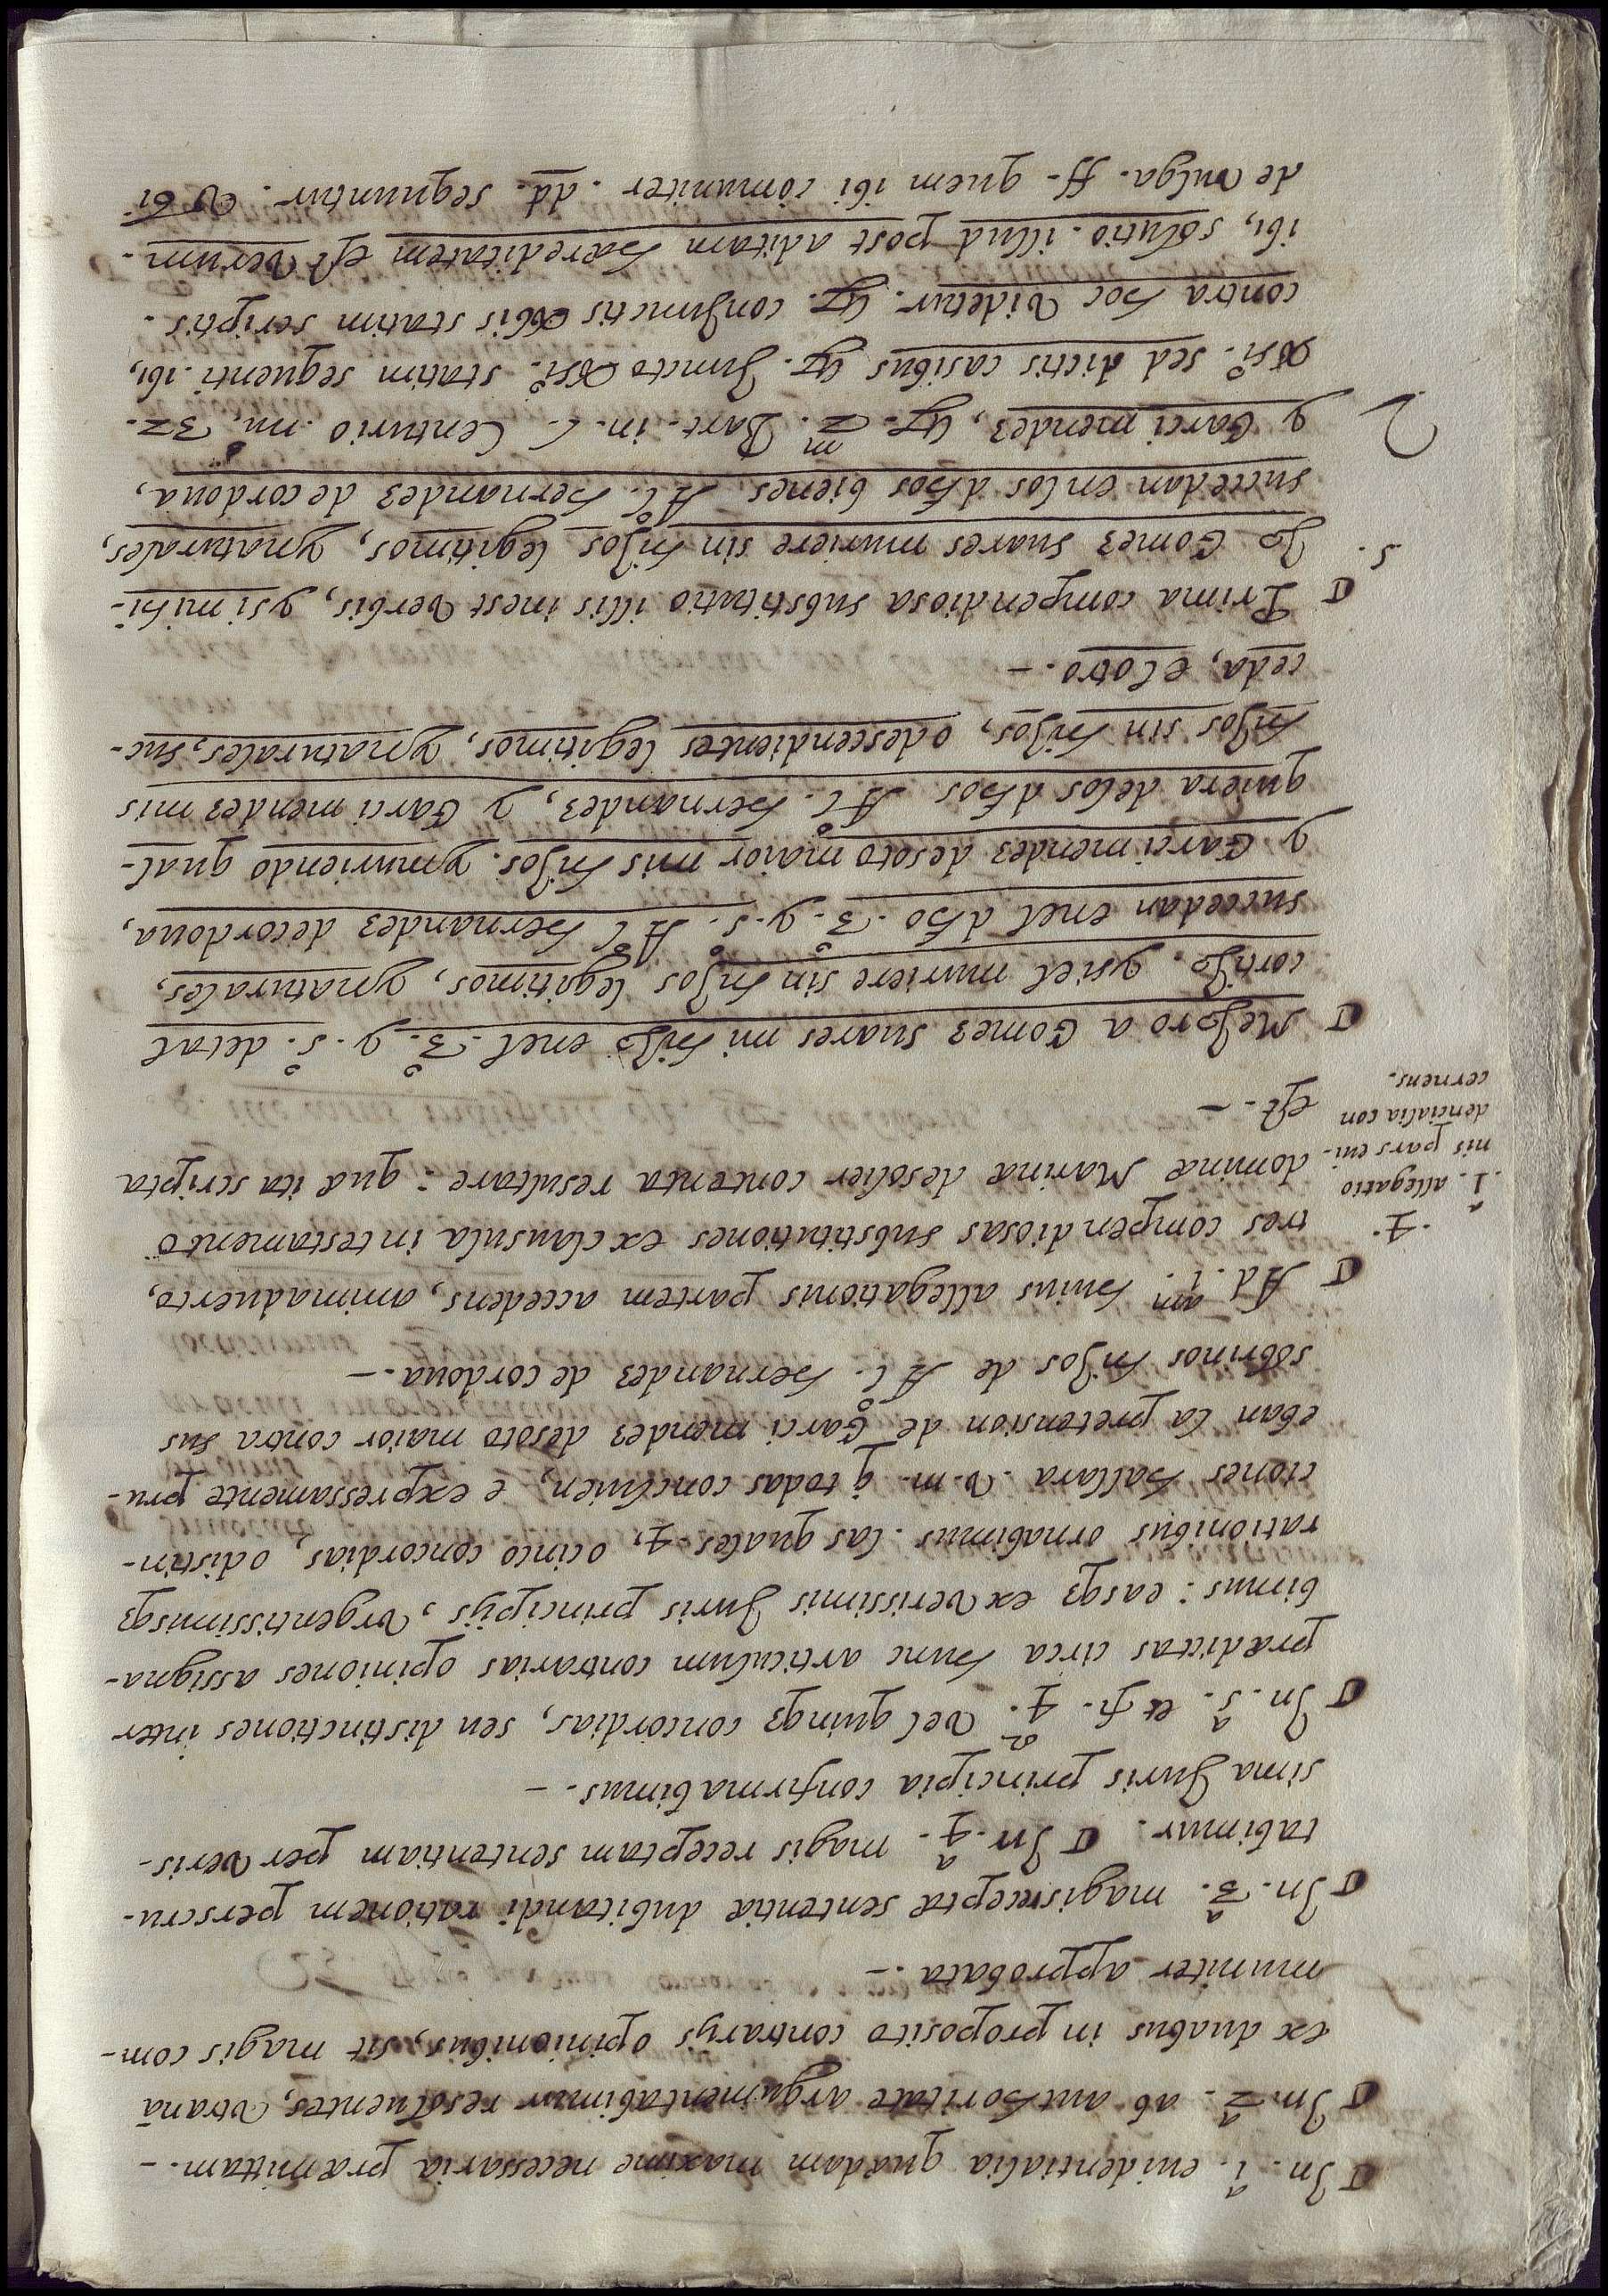 ¶ In .1.ª euidentialia quædam maxime necessaria præmittam. -
¶ In .2.ª ab authoritate argumentabimur resoluentes, vtranā
ex duabus in proposito contrarijs opinionibus, sit magis com-
muniter approbata. -
¶ In .3.ª magisreceptæ sententiæ dubitandi rationem perscru-
tabimur. ¶ In .4.ª magis receptam sententiam per veris-
sima Juris principia confirmabimus. -
¶ In .5.ª et fi. 4.or vel quinqз concordias, seu distinctiones inter
prædictas circa hunc articulum contrarias opiniones assigna-
bimus: easqз ex verissimis Juris principijs, vrgentissimisqз
rationibus ornabimus. las quales .4. o cinco concordias, o distin-
ciones hallara .v.m. q̃ todas concluien, e expressamente pru-
eban la pretension de Garci mendez desoto maior contra sus
sobrinos hijos de Al.º hernandez de cordoua. -
¶ Ad .1.am huius allegationis partem accedens, animaduerto,
.4. tres compendiosas substitutiones ex clausula in testamento
.1.ª allegatio
nis pars eui-
dencialia con
cernens.
dominæ Marinæ desolier contenta resultare: quæ ita scripta
est. -
¶ Mejoro a Gomez suares mi hijo enel .3.º y .5.º deltal
cortijo. ysiel muriere sin hijos legitimos, ynaturales,
succedan enel dho .3.º y .5.º Al.º hernandez decordoua,
y Garcimendez desoto maior mis hijos. ymuriendo qual-
quiera delos dhos Al.º hernandez, y Garci mendez mis
hijos sin hijos, odescendientes legitimos, ynaturales, suc-
ceda, elotro. -
¶ Prima compendiosa substitutio illis inest verbis, ysi mihi-
5. jo Gomez suares muriere sin hijos legitimos, ynaturales,
succedan enlos dhos bienes Al.º hernandez decordoua,
y Garci mendez, &c. 2.m Bart. in. l. Centurio .nu. 32.
versi. sed dictis casibus &c. Juncto versi. statim sequenti. ibi,
contra hoc videtur. &c. conjunctis verbis statim scriptis.
ibi, solutio. illud post aditam hæreditatem est verum.
de vulga. ff. quem ibi comuniter. dd. sequuntur. vbi